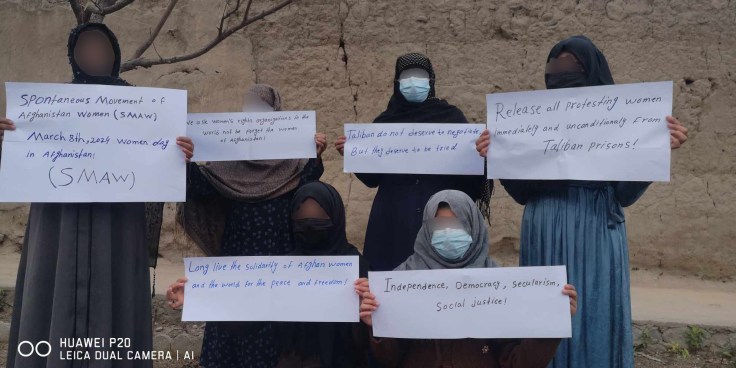 Spontaneous Movement of
Afghanistan Women (SMAW)
March 8th, 2024 Women day
in Afghanistan;
(SMAW)
We ask women's rights organizations in the
world not be forget the women
of Afghanistan!
Taliban do not deserve to negotiate
But they deserve to be tried
Release all Protesting women
immediately and unconditionally From
Taliban prisons!
Long live the solidarity of Afghan women
and the world for the peace and freedom!
Independence, Democracy, secularism,
Social justice!
HUAWEI P20
LEICA DUAL CAMERA | AI